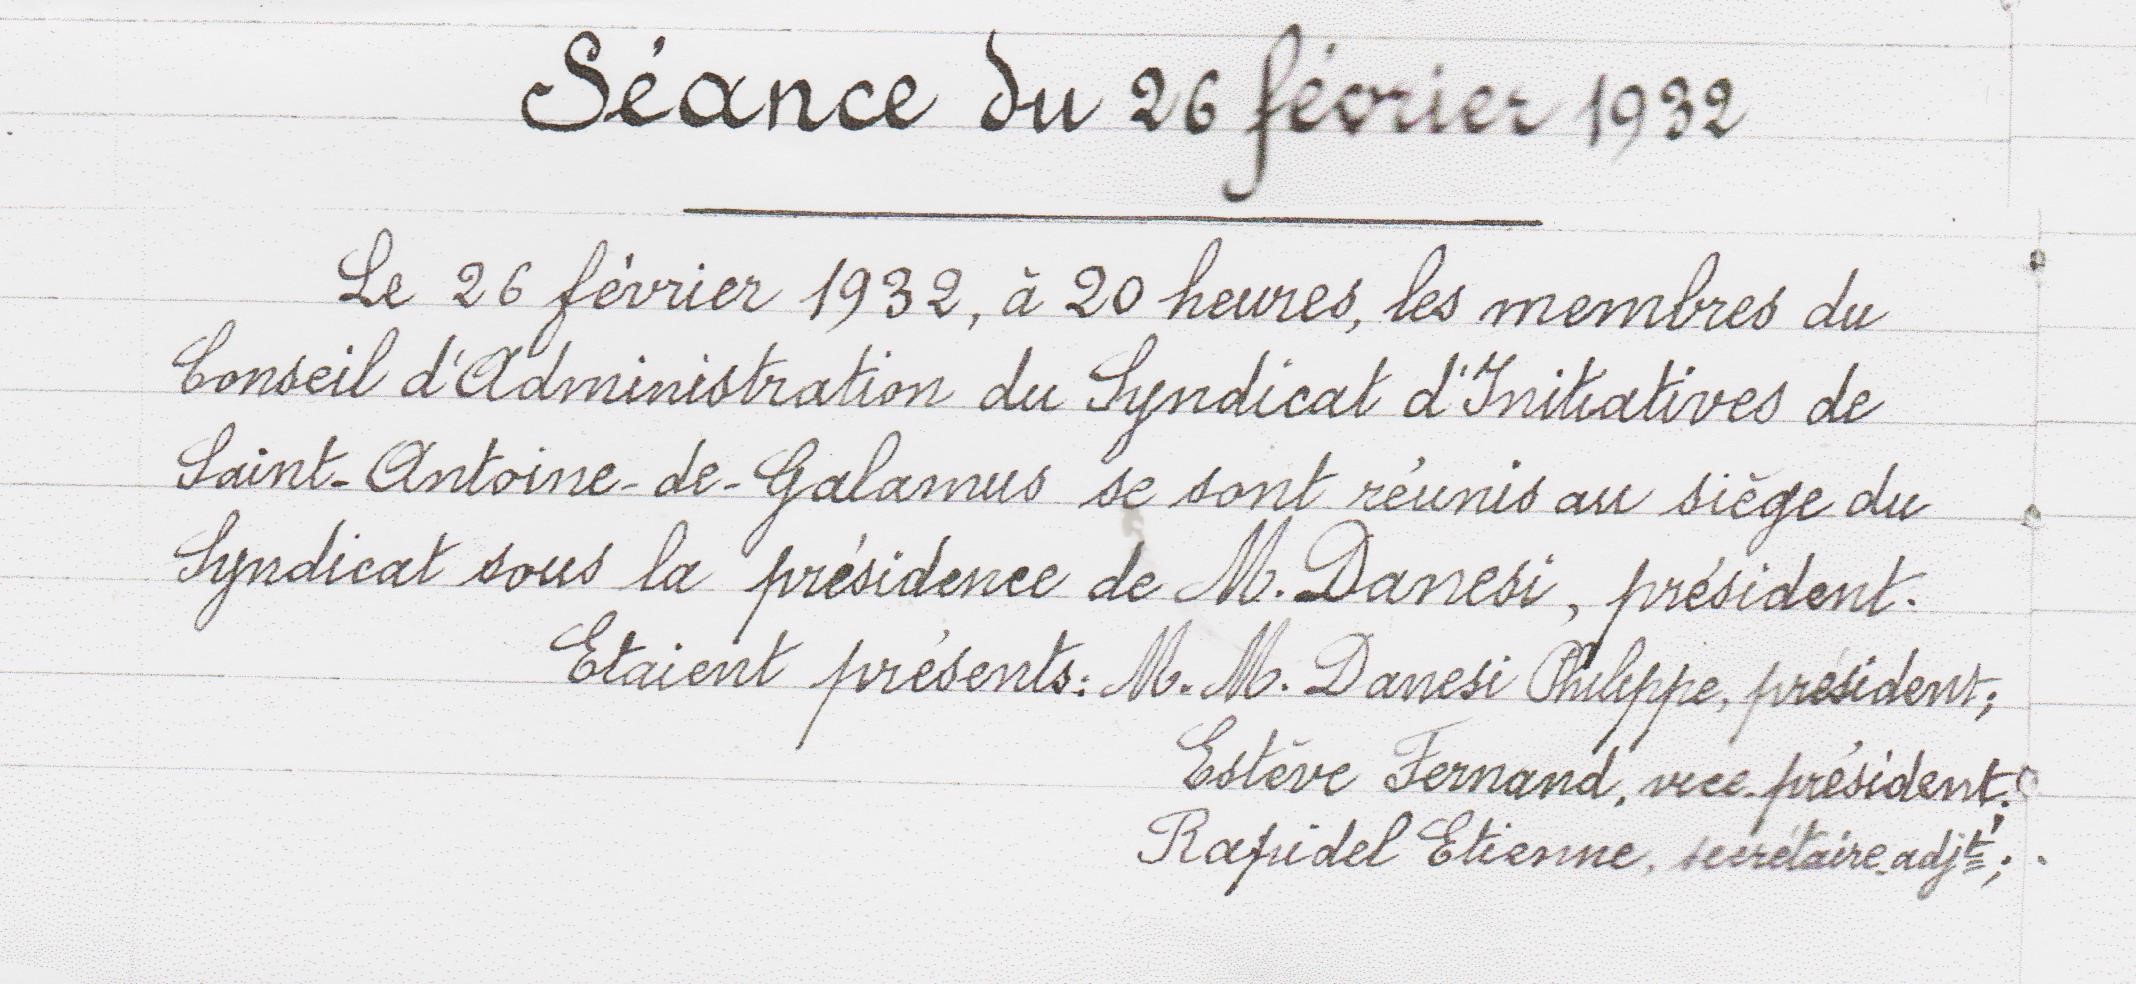 Séance du 26 février 1932
Le 26 février 1932, à 20 heures, les membres du
Conseil d'Administration du Syndicat d'Initiatives de
Saint-Antoine-de-Galamus se sont réunis au siège du
Syndicat sous la présidence de M. Danesi, président.
Etaient présents: M. M. Danesi Philippe, président;
Estève Fernand, vice-président;
Rapidel Etienne, secrétaire-adjt;